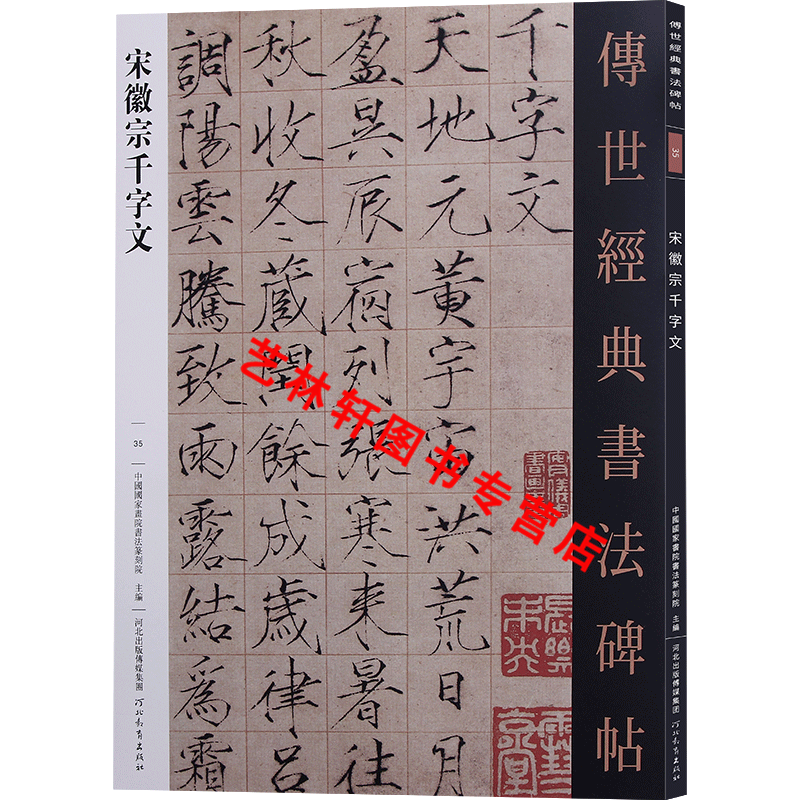 傳世經典書法碑帖
35
宋徽宗千字文
中國國家畫院書法篆刻院 主編
河北出版傳媒集團
河北教育出版社
傳世經典書法碑帖
千字文
天地元黃宇宙洪荒日月
盈昃辰宿列張寒來暑往
秋收冬蔵閏餘成歲律呂
調陽雲騰致雨露結爲霜
宋徽宗千字文
35
中國國家畫院書法篆刻院 主編
河北出版傳媒集團
河北教育出版社
艺林轩图书专营店